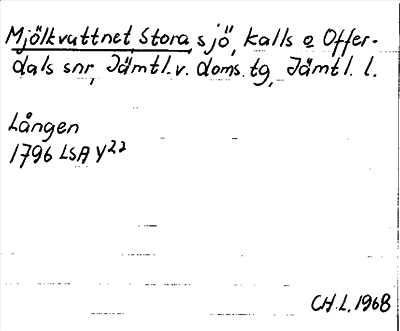 Mjölkvattnet Stora sjö, Kalls o Offer-
dals snr, Jämtl. v. doms. tg, Jämtl. l.
Lången
1796 LSA Y22
CH.L. 1968